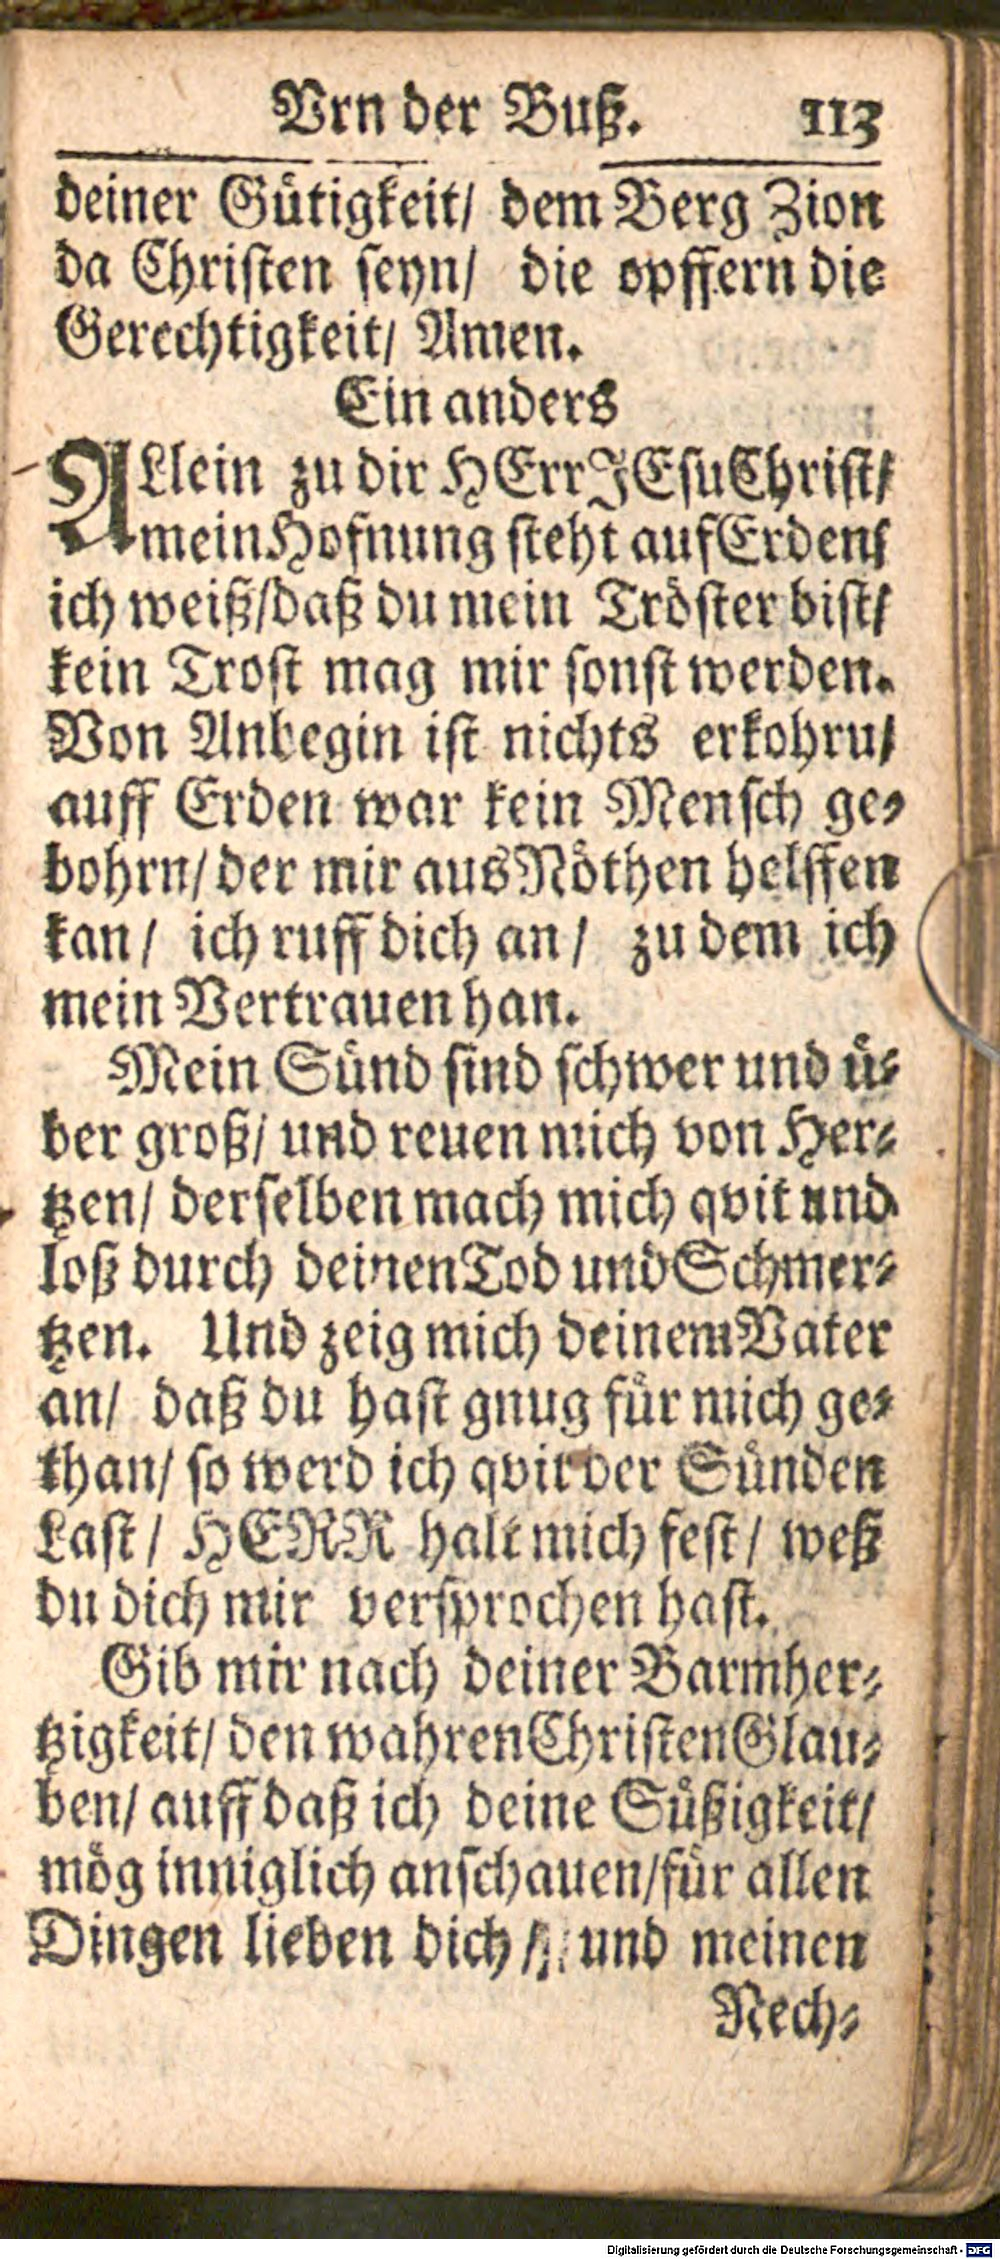 Vrn der Buß. 113
deiner Gütigkeit/ dem Berg Zion
da Christen seyn/ die opffern die
Gerechtigkeit/ Amen.
Ein anders
ALlein zu dir HErr JEsu Christ/
mein Hofnung steht auf Erden/
ich weiß/daß du mein Tröster bist/
kein Trost mag mir sonst werden.
Von Anbegin ist nichts erkohru/
auff Erden war kein Mensch ge-
bohrn/ der mir aus Nöthen helffen
kan/ ich ruff dich an/ zu dem ich
mein Vertrauen han.
Mein Sünd sind schwer und ü-
ber groß/ und reuen mich von Her-
tzen/ derselben mach mich qvit und
loß durch deinen Tod und Schmer-
tzen. Und zeig mich deinem Vater
an/ daß du hast gnug für mich ge-
than/ so werd ich qvit der Sünden
Last/ HERR halt mich fest/ weß
du dich mir versprochen hast.
Gib mir nach deiner Barmher-
tzigkeit/ den wahren Christen Glau-
ben/ auff daß ich deine Süßigkeit/
mög inniglich anschauen/für allen
Dingen lieben dich/ und meinen
Nech-
Digitalisierung gefördert durch die Deutsche Forschungsgemeinschaft - DFG